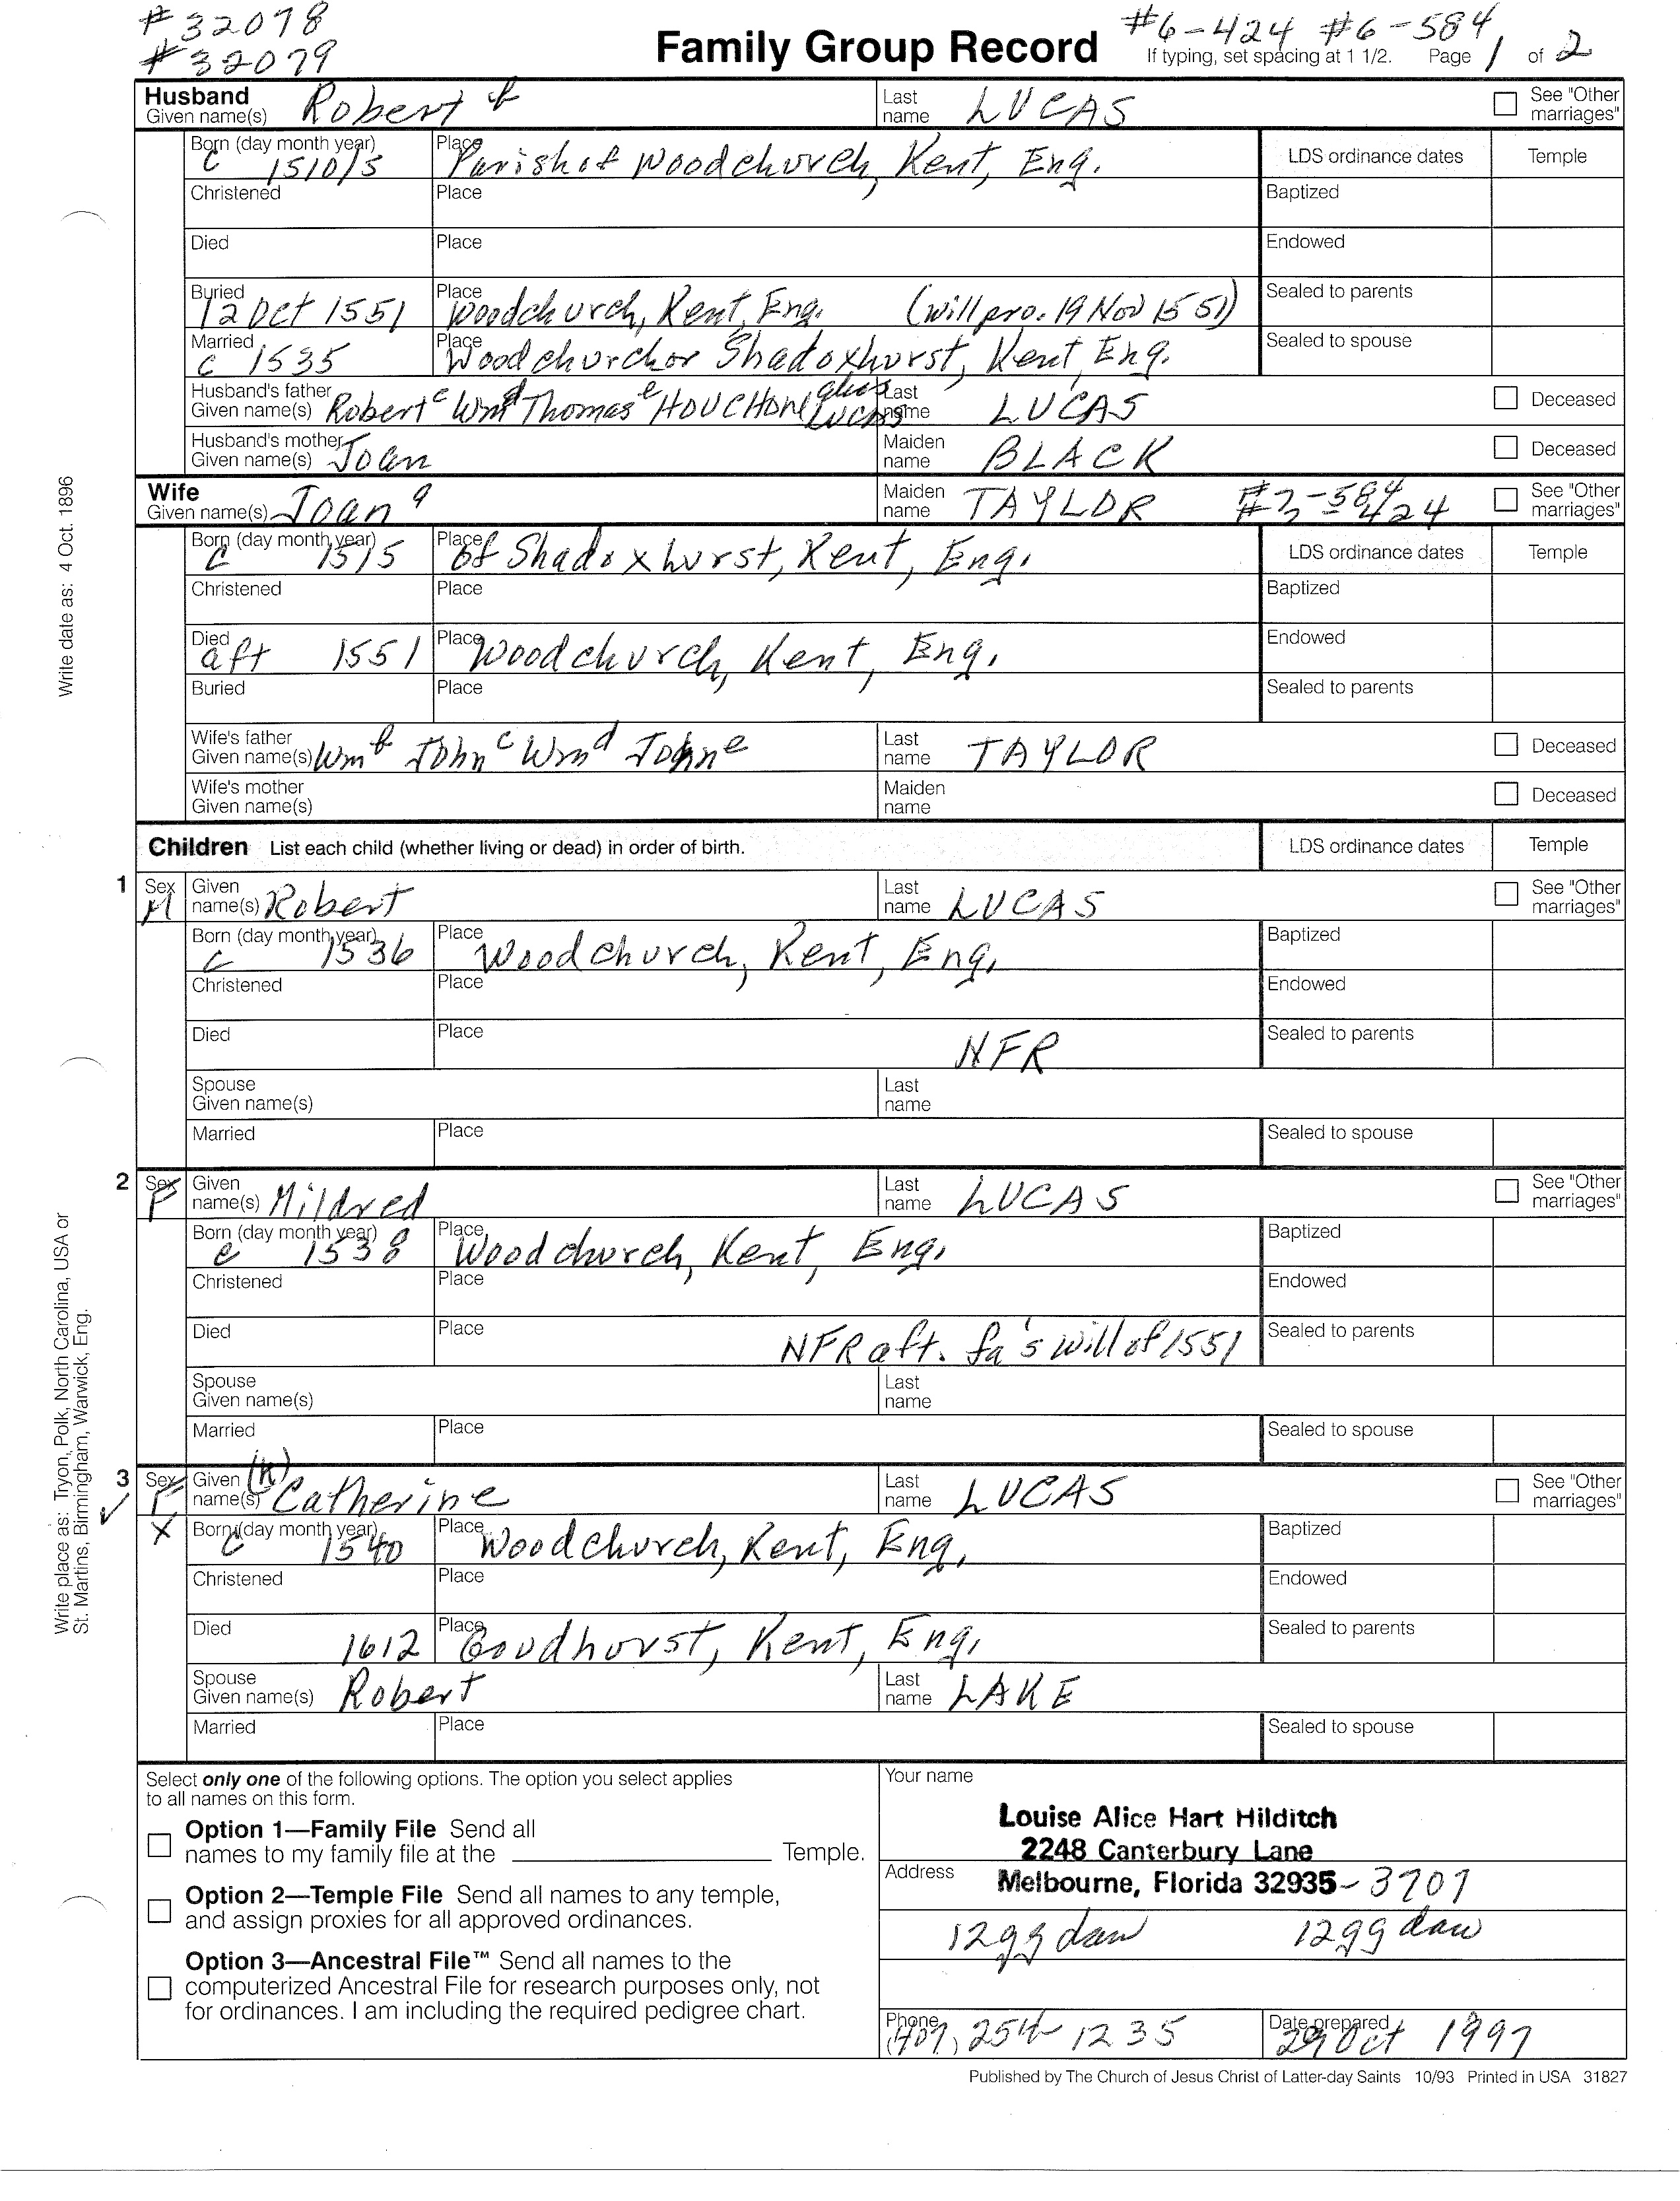 #32078 #6-424 #6-584
#32079 Family Group Record If typing, set spacing at 1 1/2. Page 1 of 2
Husband Given name(s) Robert f Last name LUCAS See "Other marriages"
Born (day month year) c 1510/5 Place Parish of Woodchurch, Kent, Eng. LDS ordinance dates Temple
Christened Place Baptized
Died Place Endowed
Buried 12 Oct 1551 Place Woodchurch, Kent, Eng. (will pro. 19 Nov 1551) Sealed to parents
Married c 1535 Place Woodchurch or Shadoxhurst, Kent, Eng. Sealed to spouse
Husband's father Given name(s) Robert c Wm d Thomas e HOUCHON alias LUCAS Last name LUCAS Deceased
Husband's mother Given name(s) Joan Maiden name BLACK Deceased
Wife Given name(s) Joan g Maiden name TAYLOR #7-584 424 See "Other marriages"
Born (day month year) c 1515 Place of Shadoxhurst, Kent, Eng. LDS ordinance dates Temple
Christened Place Baptized
Died aft 1551 Place Woodchurch, Kent, Eng. Endowed
Buried Place Sealed to parents
Wife's father Given name(s) Wm f John c Wm d John e Last name TAYLOR Deceased
Wife's mother Given name(s) Maiden name Deceased
Children List each child (whether living or dead) in order of birth. LDS ordinance dates Temple
1 Sex M Given name(s) Robert Last name LUCAS See "Other marriages"
Born (day month year) c 1536 Place Woodchurch, Kent, Eng, Baptized
Christened Place Endowed
Died Place NFR Sealed to parents
Spouse Given name(s) Last name
Married Place Sealed to spouse
2 Sex F Given name(s) Mildred Last name LUCAS See "Other marriages"
Born (day month year) c 1538 Place Woodchurch, Kent, Eng. Baptized
Christened Place Endowed
Died Place NFR aft. fa's will of 1551 Sealed to parents
Spouse Given name(s) Last name
Married Place Sealed to spouse
3 Sex F Given name(s) (K) Catherine Last name LUCAS See "Other marriages"
X Born (day month year) c 1540 Place Woodchurch, Kent, Eng, Baptized
Christened Place Endowed
Died 1612 Place Goudhurst, Kent, Eng, Sealed to parents
Spouse Given name(s) Robert Last name LAKE
Married Place Sealed to spouse
Write date as: 4 Oct. 1896
Write place as: Tryon, Polk, North Carolina, USA or
St. Martins, Birmingham, Warwick, Eng.
Select only one of the following options. The option you select applies
to all names on this form.
Option 1—Family File Send all
names to my family file at the Temple.
Option 2—Temple File Send all names to any temple,
and assign proxies for all approved ordinances.
Option 3—Ancestral File™ Send all names to the
computerized Ancestral File for research purposes only, not
for ordinances. I am including the required pedigree chart.
Your name
Louise Alice Hart Hilditch
2248 Canterbury Lane
Address Melbourne, Florida 32935-3707
12gg dau 12gg dau
Phone (407) 254-1235 Date prepared 29 Oct 1997
Published by The Church of Jesus Christ of Latter-day Saints 10/93 Printed in USA 31827